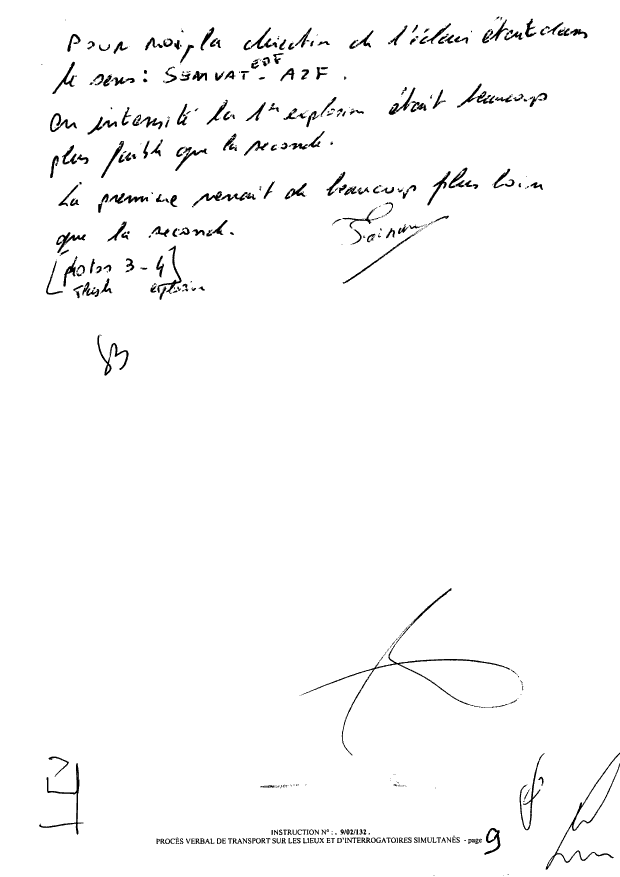 Pour moi, la direction de l'éclair étant dans
le sens : SEMVAT - EDF - AZF.
En intensité la 1ère explosion était beaucoup
plus faible que la seconde.
La première venait de beaucoup plus loin
que la seconde.
[photos 3 - 4]
Flash explosion
INSTRUCTION N° : . 9/02/132 .
PROCÈS VERBAL DE TRANSPORT SUR LES LIEUX ET D'INTERROGATOIRES SIMULTANÉS - page 9